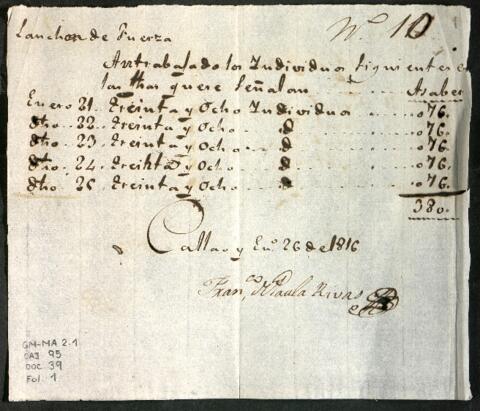 Lanchon de Fuerza
Nº 10
An trabajado los Individuos siguientes en
las thas que se señalan Asaber
Enero 21. Treinta y Ocho Individuos 076.
dho.. 22.. Treinta y Ocho.. d 076.
dho.. 23.. Treinta y Ocho.. d 076.
dho.. 24.. Treinta y Ocho d 076.
dho.. 26. Treinta y Ocho d 076.
380.
Callao y Enº 26 de 1816
Franco de Paula Rivas
GM-MA 2.1
CAJ 95
DOC 39
Fol. 1